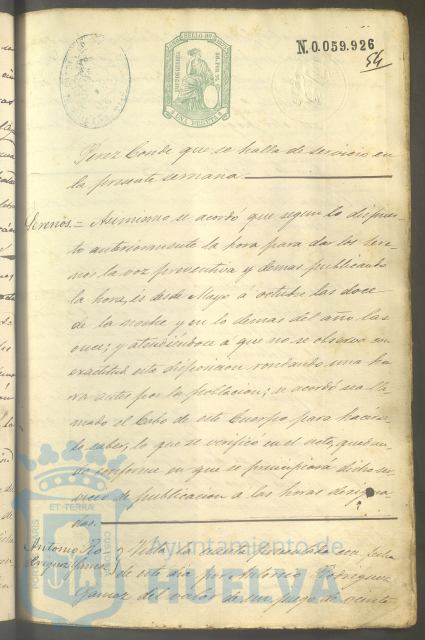 SELLO 10º
UNA PESETA
N. 0.059.926
54
Perez Conde que se halla de servicio en
la presente semana.
Serenos = Asimismo se acordó que segun lo dispues-
to anteriormente la hora para dar los sere-
nos la voz preventiva y demas publicando
la hora, es desde Mayo á octubre las doce
de la noche y en lo demas del año las
once; y atendiendose a que no se observa con
exactitud esta disposicion rondando una ho-
ra antes por la poblacion; se acordó sea lla-
mado el Cabo de este Cuerpo para hacer-
lo saber, lo que se verificó en el acto, quedan-
do conforme en que se principiará dicho ser-
vicio de publicacion a las horas designa-
das.
Antonio Ro-
driguez Gamez
y Vista la cuenta presentada con fecha
de este dia por Antonio Rodriguez
Gamez del valor de un juego de veinte
ET TERRÆ
PORTUS MARIS
CUSTODIA
Ayuntamiento de
HUELVA